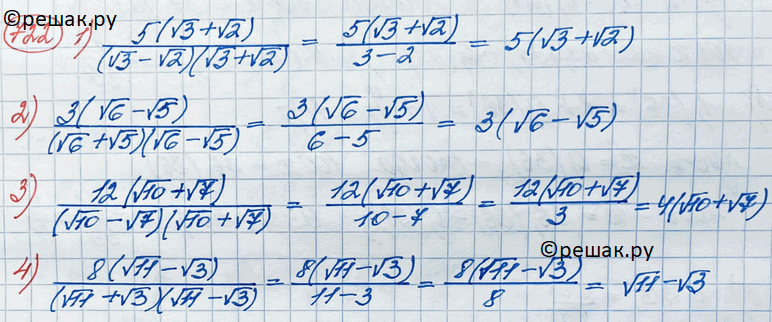 ©решак.ру
722) 1) 5(√3+√2)/(√3−√2)(√3+√2) = 5(√3+√2)/3−2 = 5(√3+√2)
2) 3(√6−√5)/(√6+√5)(√6−√5) = 3(√6−√5)/6−5 = 3(√6−√5)
3) 12(√10+√7)/(√10−√7)(√10+√7) = 12(√10+√7)/10−7 = 12(√10+√7)/3 = 4(√10+√7)
©решак.ру
4) 8(√11−√3)/(√11+√3)(√11−√3) = 8(√11−√3)/11−3 = 8(√11−√3)/8 = √11−√3